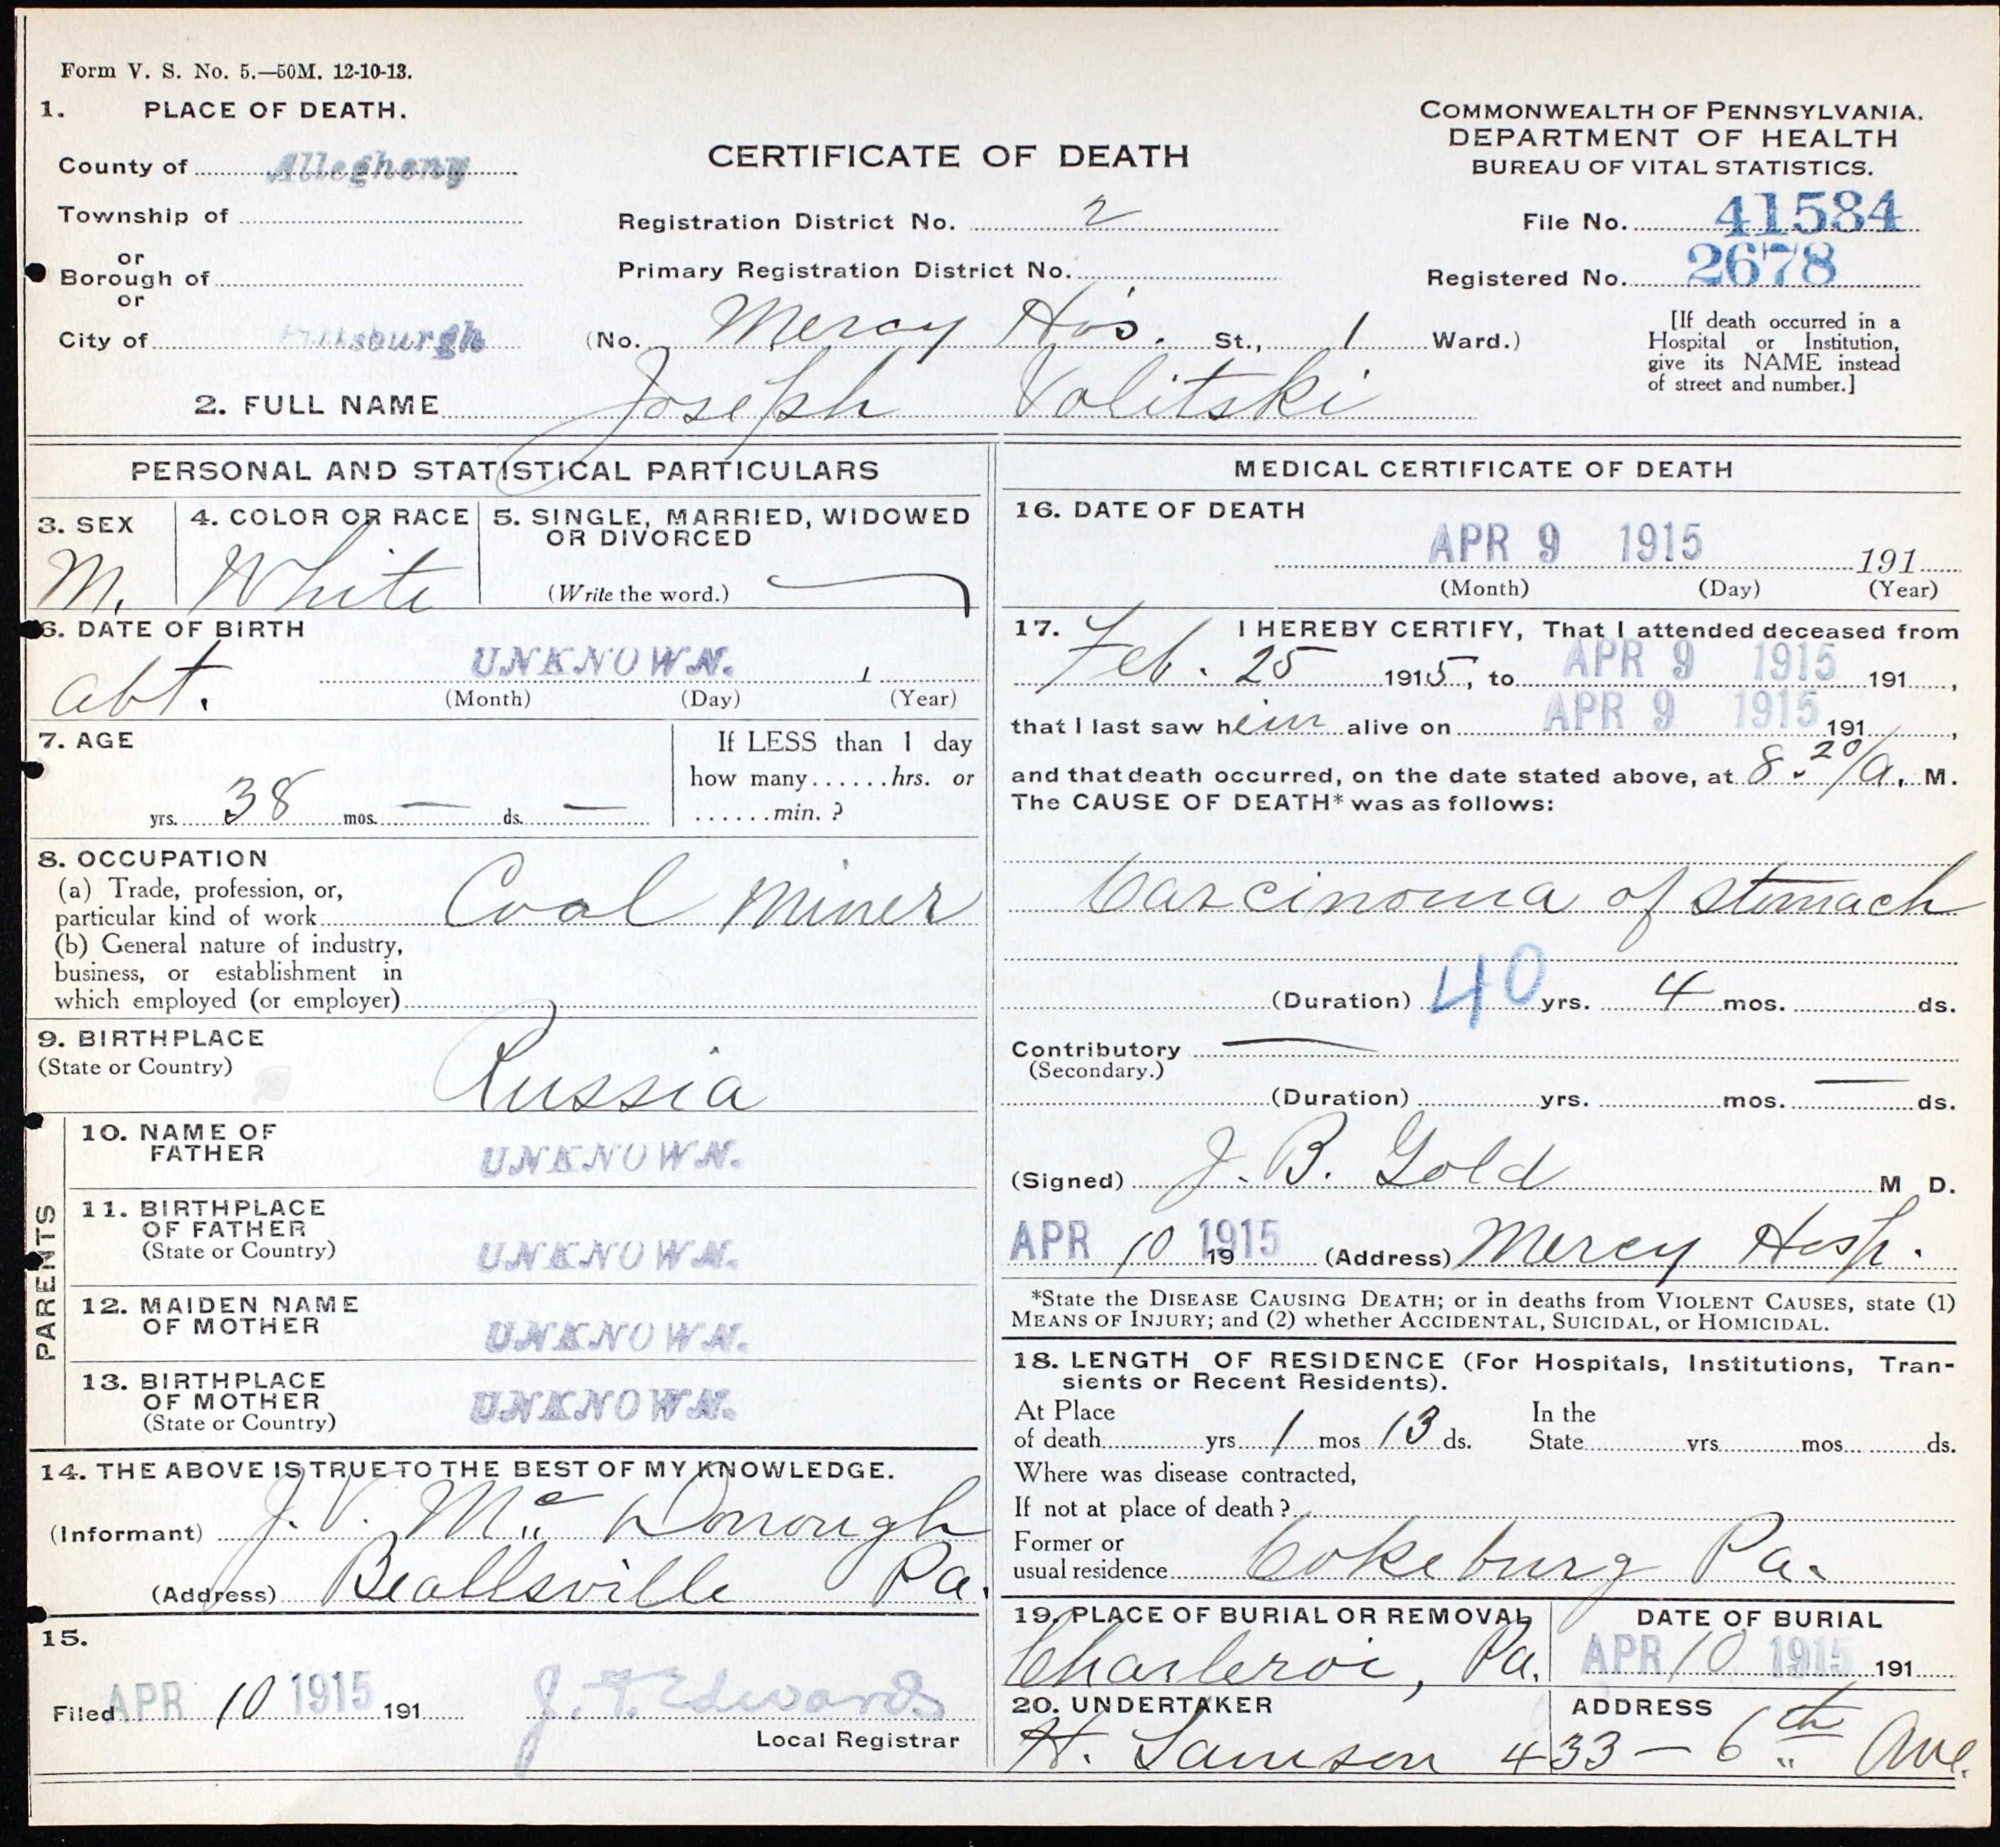 Form V. S. No. 5.—50M. 12-10-13.
1. PLACE OF DEATH.
County of Allegheny
Township of
or
Borough of
or
City of Pittsburgh
CERTIFICATE OF DEATH
Registration District No. 2
Primary Registration District No.
(No. Mercy Hos. St., 1 Ward.)
COMMONWEALTH OF PENNSYLVANIA.
DEPARTMENT OF HEALTH
BUREAU OF VITAL STATISTICS.
File No. 41584
Registered No. 2678
[If death occurred in a
Hospital or Institution,
give its NAME instead
of street and number.]
2. FULL NAME Joseph Volitski
PERSONAL AND STATISTICAL PARTICULARS
3. SEX
M.
4. COLOR OR RACE
White
5. SINGLE, MARRIED, WIDOWED
OR DIVORCED
(Write the word.)
6. DATE OF BIRTH
abt. UNKNOWN. 1
(Month) (Day) (Year)
7. AGE
yrs. 38 mos. — ds. —
If LESS than 1 day
how many......hrs. or
......min.?
8. OCCUPATION
(a) Trade, profession, or,
particular kind of work Coal Miner
(b) General nature of industry,
business, or establishment in
which employed (or employer)
9. BIRTHPLACE
(State or Country)
Russia
PARENTS
10. NAME OF
FATHER
UNKNOWN.
11. BIRTHPLACE
OF FATHER
(State or Country)
UNKNOWN.
12. MAIDEN NAME
OF MOTHER
UNKNOWN.
13. BIRTHPLACE
OF MOTHER
(State or Country)
UNKNOWN.
14. THE ABOVE IS TRUE TO THE BEST OF MY KNOWLEDGE.
(Informant) J. V. Mc Donough
(Address) Beallsville Pa.
15.
Filed APR 10 1915 191
J. F. Edwards
Local Registrar
MEDICAL CERTIFICATE OF DEATH
16. DATE OF DEATH
APR 9 1915 191
(Month) (Day) (Year)
17. I HEREBY CERTIFY, That I attended deceased from
Feb. 25 1915, to APR 9 1915 191,
that I last saw him alive on APR 9 1915 191,
and that death occurred, on the date stated above, at 8.20/a. M.
The CAUSE OF DEATH* was as follows:
Carcinoma of Stomach
(Duration) 40 yrs. 4 mos. ds.
Contributory —
(Secondary.)
(Duration) yrs. mos. — ds.
(Signed) J. B. Gold M D.
APR 10 1915 19 (Address) Mercy Hosp.
*State the DISEASE CAUSING DEATH; or in deaths from VIOLENT CAUSES, state (1)
MEANS OF INJURY; and (2) whether ACCIDENTAL, SUICIDAL, or HOMICIDAL.
18. LENGTH OF RESIDENCE (For Hospitals, Institutions, Tran-
sients or Recent Residents).
At Place
of death yrs 1 mos 13 ds.
In the
State yrs mos ds.
Where was disease contracted,
If not at place of death?
Former or
usual residence Cokeburg Pa.
19. PLACE OF BURIAL OR REMOVAL
Charleroi, Pa.
DATE OF BURIAL
APR 10 1915 191
20. UNDERTAKER
H. Samson
ADDRESS
433 — 6th Ave.